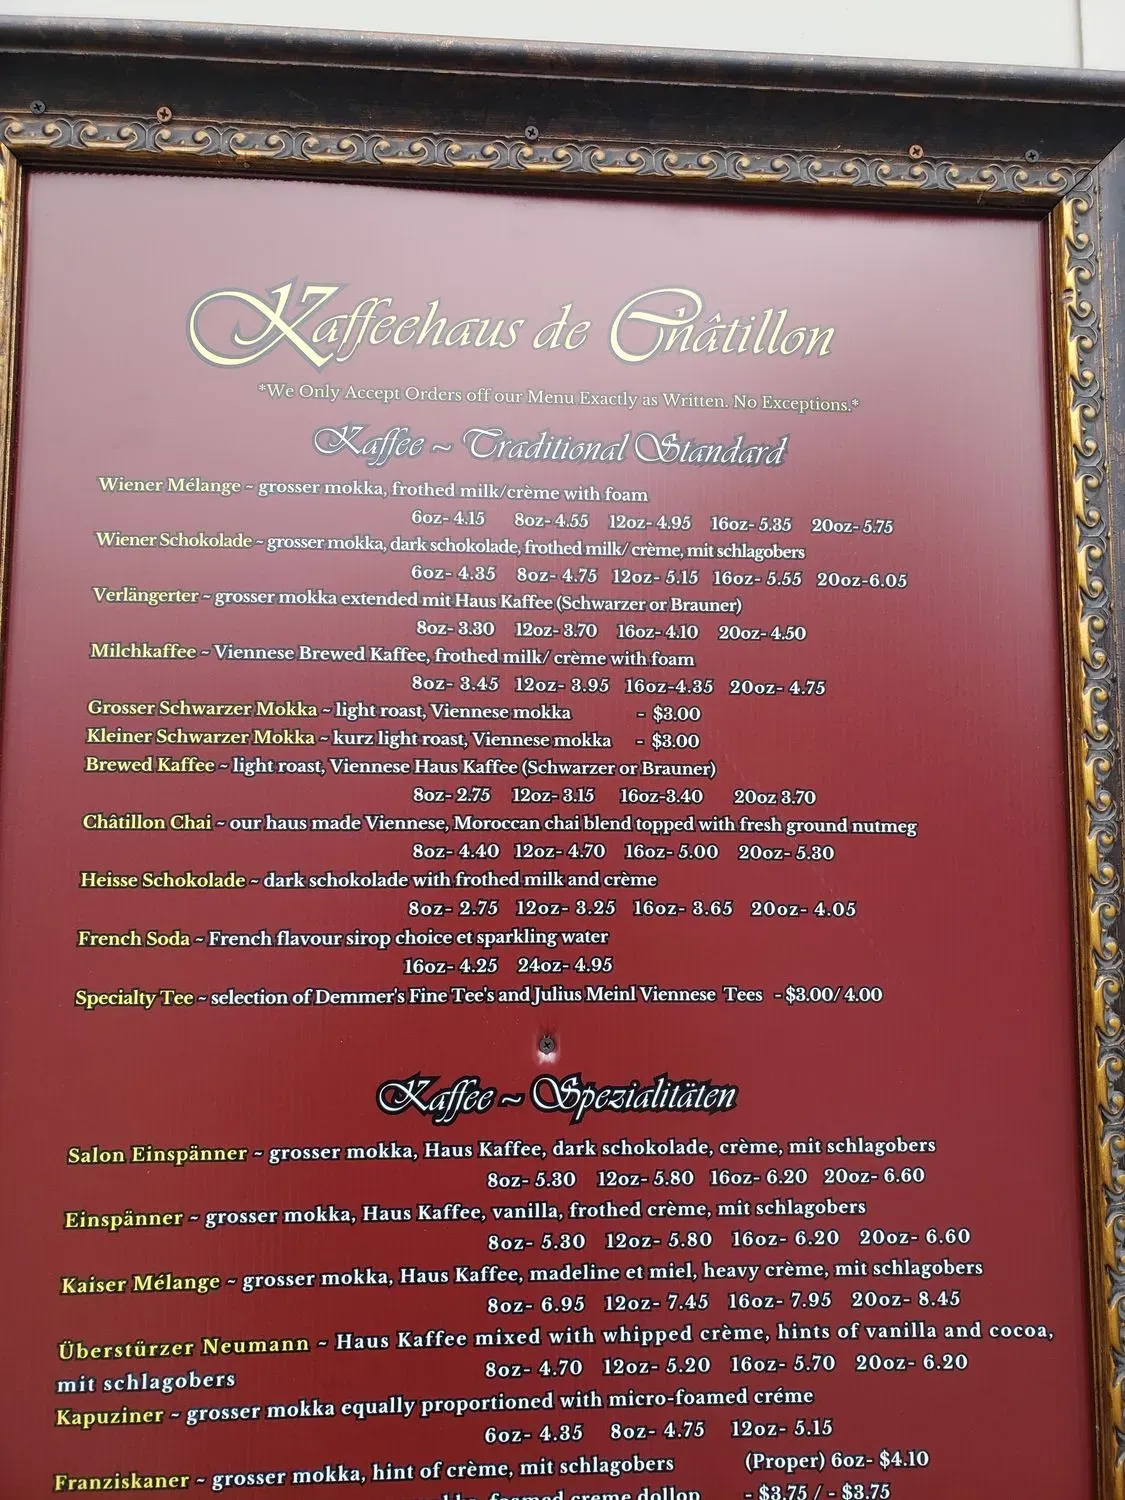 Kaffeehaus de Châtillon
*We Only Accept Orders off our Menu Exactly as Written. No Exceptions.*
Kaffee ~ Traditional Standard
Wiener Mélange ~ grosser mokka, frothed milk/crème with foam
6oz- 4.15 8oz- 4.55 12oz- 4.95 16oz- 5.35 20oz- 5.75
Wiener Schokolade ~ grosser mokka, dark schokolade, frothed milk/ crème, mit schlagobers
6oz- 4.35 8oz- 4.75 12oz- 5.15 16oz- 5.55 20oz-6.05
Verlängerter ~ grosser mokka extended mit Haus Kaffee (Schwarzer or Brauner)
8oz- 3.30 12oz- 3.70 16oz- 4.10 20oz- 4.50
Milchkaffee ~ Viennese Brewed Kaffee, frothed milk/ crème with foam
8oz- 3.45 12oz- 3.95 16oz-4.35 20oz- 4.75
Grosser Schwarzer Mokka ~ light roast, Viennese mokka - $3.00
Kleiner Schwarzer Mokka ~ kurz light roast, Viennese mokka - $3.00
Brewed Kaffee ~ light roast, Viennese Haus Kaffee (Schwarzer or Brauner)
8oz- 2.75 12oz- 3.15 16oz-3.40 20oz 3.70
Châtillon Chai ~ our haus made Viennese, Moroccan chai blend topped with fresh ground nutmeg
8oz- 4.40 12oz- 4.70 16oz- 5.00 20oz- 5.30
Heisse Schokolade ~ dark schokolade with frothed milk and crème
8oz- 2.75 12oz- 3.25 16oz- 3.65 20oz- 4.05
French Soda ~ French flavour sirop choice et sparkling water
16oz- 4.25 24oz- 4.95
Specialty Tee ~ selection of Demmer's Fine Tee's and Julius Meinl Viennese Tees - $3.00/ 4.00
Kaffee ~ Spezialitäten
Salon Einspänner ~ grosser mokka, Haus Kaffee, dark schokolade, crème, mit schlagobers
8oz- 5.30 12oz- 5.80 16oz- 6.20 20oz- 6.60
Einspänner ~ grosser mokka, Haus Kaffee, vanilla, frothed crème, mit schlagobers
8oz- 5.30 12oz- 5.80 16oz- 6.20 20oz- 6.60
Kaiser Mélange ~ grosser mokka, Haus Kaffee, madeline et miel, heavy crème, mit schlagobers
8oz- 6.95 12oz- 7.45 16oz- 7.95 20oz- 8.45
Überstürzer Neumann ~ Haus Kaffee mixed with whipped crème, hints of vanilla and cocoa,
mit schlagobers 8oz- 4.70 12oz- 5.20 16oz- 5.70 20oz- 6.20
Kapuziner ~ grosser mokka equally proportioned with micro-foamed créme
6oz- 4.35 8oz- 4.75 12oz- 5.15
Franziskaner ~ grosser mokka, hint of crème, mit schlagobers (Proper) 6oz- $4.10
foamed creme dollop - $3.75 / - $3.75